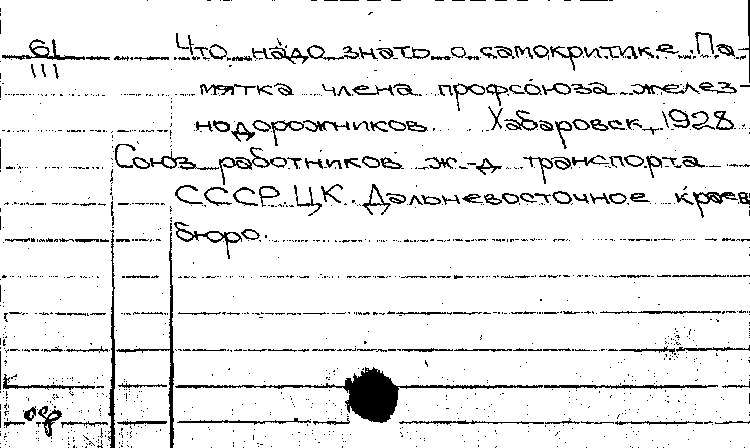 61 Что надо знать о самокритике. Па-
111 мятка члена профсоюза желез-
нодорожников. Хабаровск, 1928.
Союз работников ж.-д транспорта
СССР. ЦК. Дальневосточное краев
бюро.